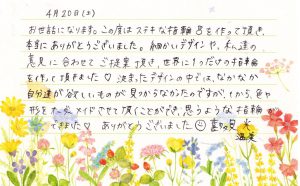 4月20日(土)
お世話になります。この度はステキな指輪を作って頂き、
本当にありがとうございました。細かいデザインや、私達の
意見に合わせてご提案頂き、世界に1つだけの指輪
を作って頂きました♡ 決まったデザインの中では、なかなか
自分達が欲しいものが見つからなかったのですが、1から、色や
形をオーダーメイドさせて頂くことができ、思うような指輪が
できました♡ ありがとうございました